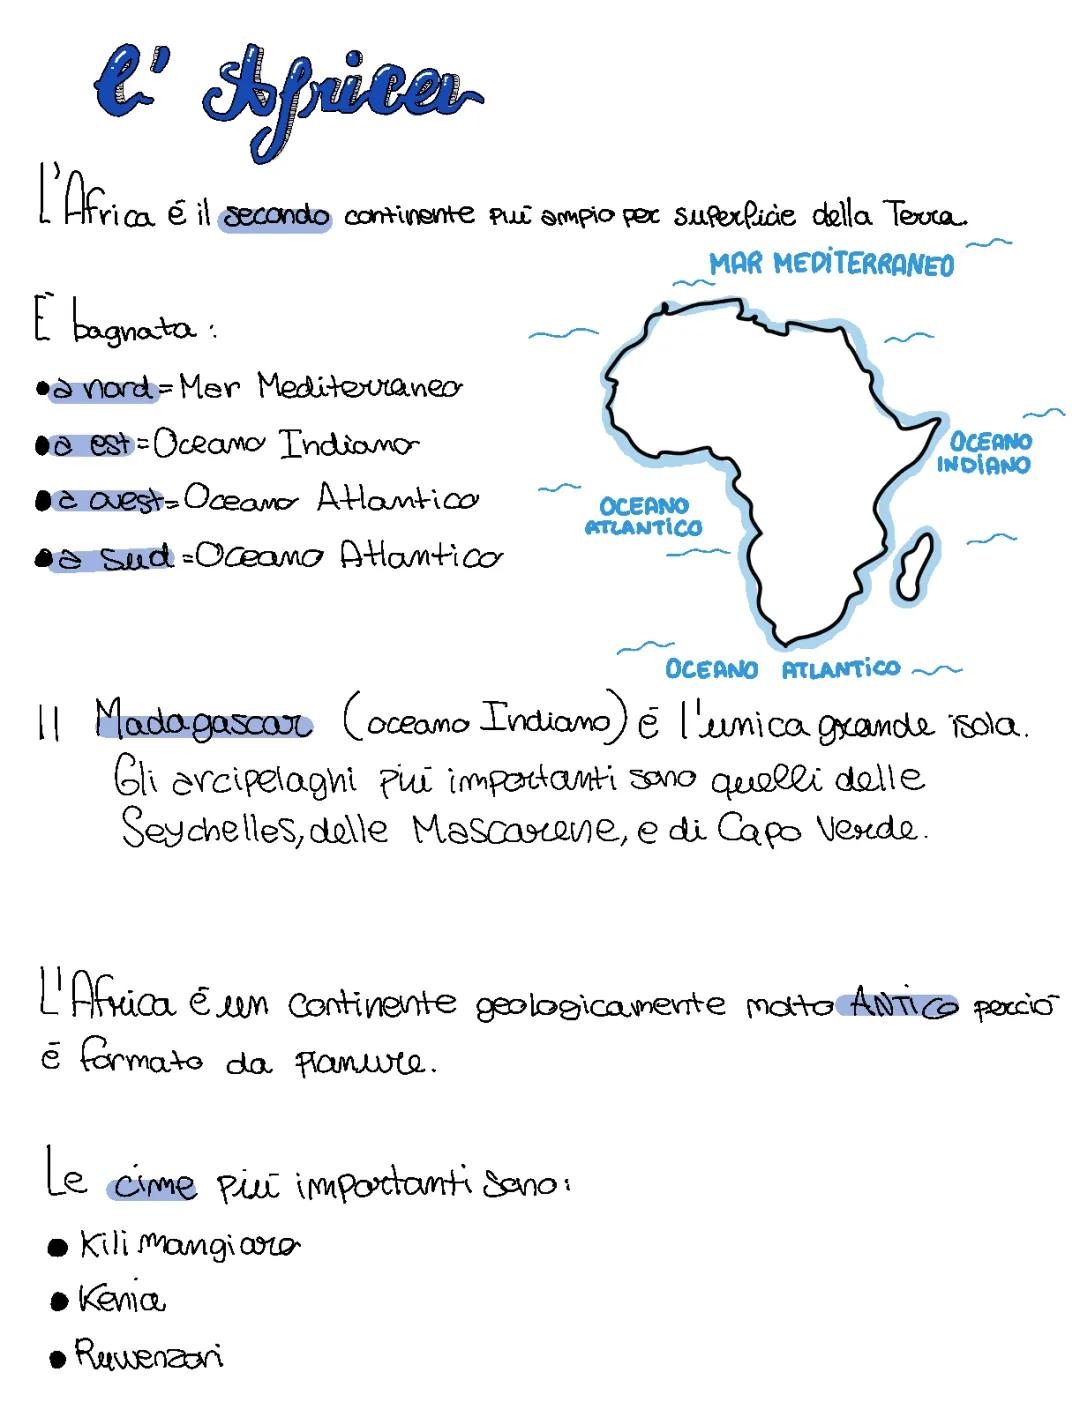 l' Africa
L'Africa é il secondo continente più ampio per superficie della Terra.
MAR MEDITERRANEO
É bagnata:
• a nord = Mar Mediterraneo
• a est = Oceano Indiano
• a ovest = Oceano Atlantico
• a sud = Oceano Atlantico
OCEANO
INDIANO
OCEANO
ATLANTICO
OCEANO ATLANTICO
Il Madagascar (oceano Indiano) é l'unica grande isola.
Gli arcipelaghi più importanti sono quelli delle
Seychelles, delle Mascarene, e di Capo Verde.
L'Africa é un continente geologicamente molto ANTICO perció
é formato da pianure.
Le cime più importanti sono:
• Kilimangiaro
• Kenia
• Ruwenzori